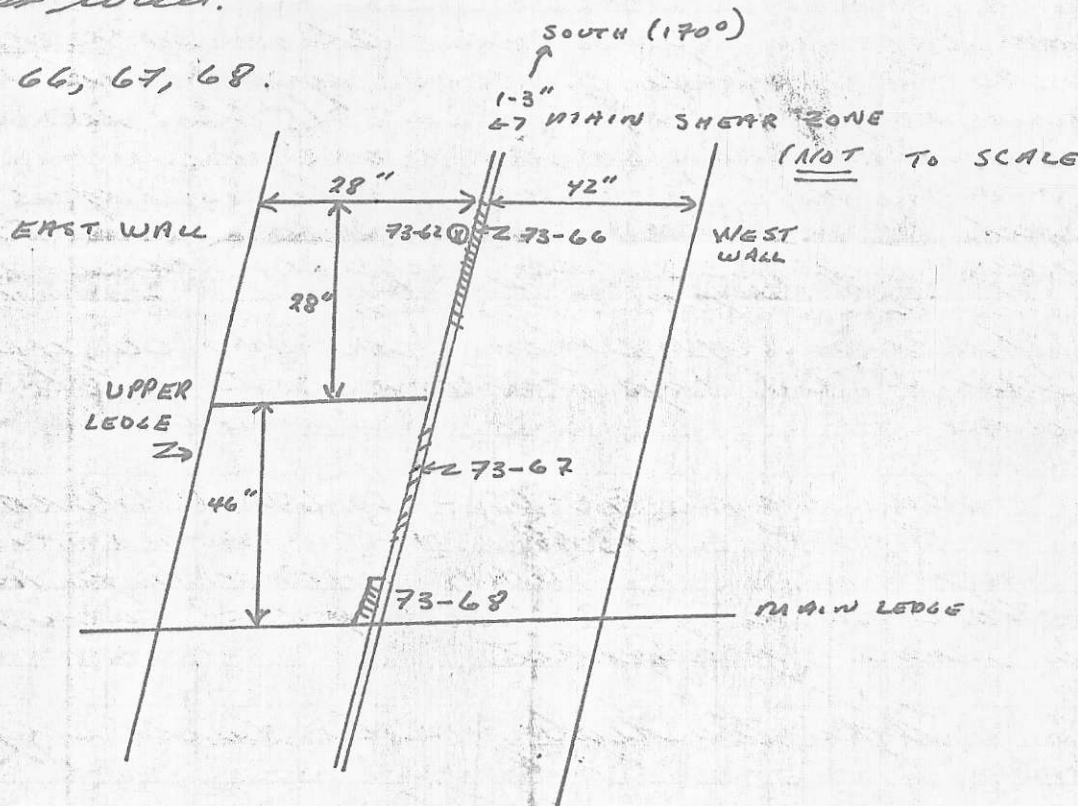 66, 67, 68.
SOUTH (170°)
1-3"
MAIN SHEAR ZONE
(NOT TO SCALE
28" 42"
EAST WALL 73-62 73-66 WEST
WALL
28"
UPPER
LEDGE
73-67
46"
73-68
MAIN LEDGE